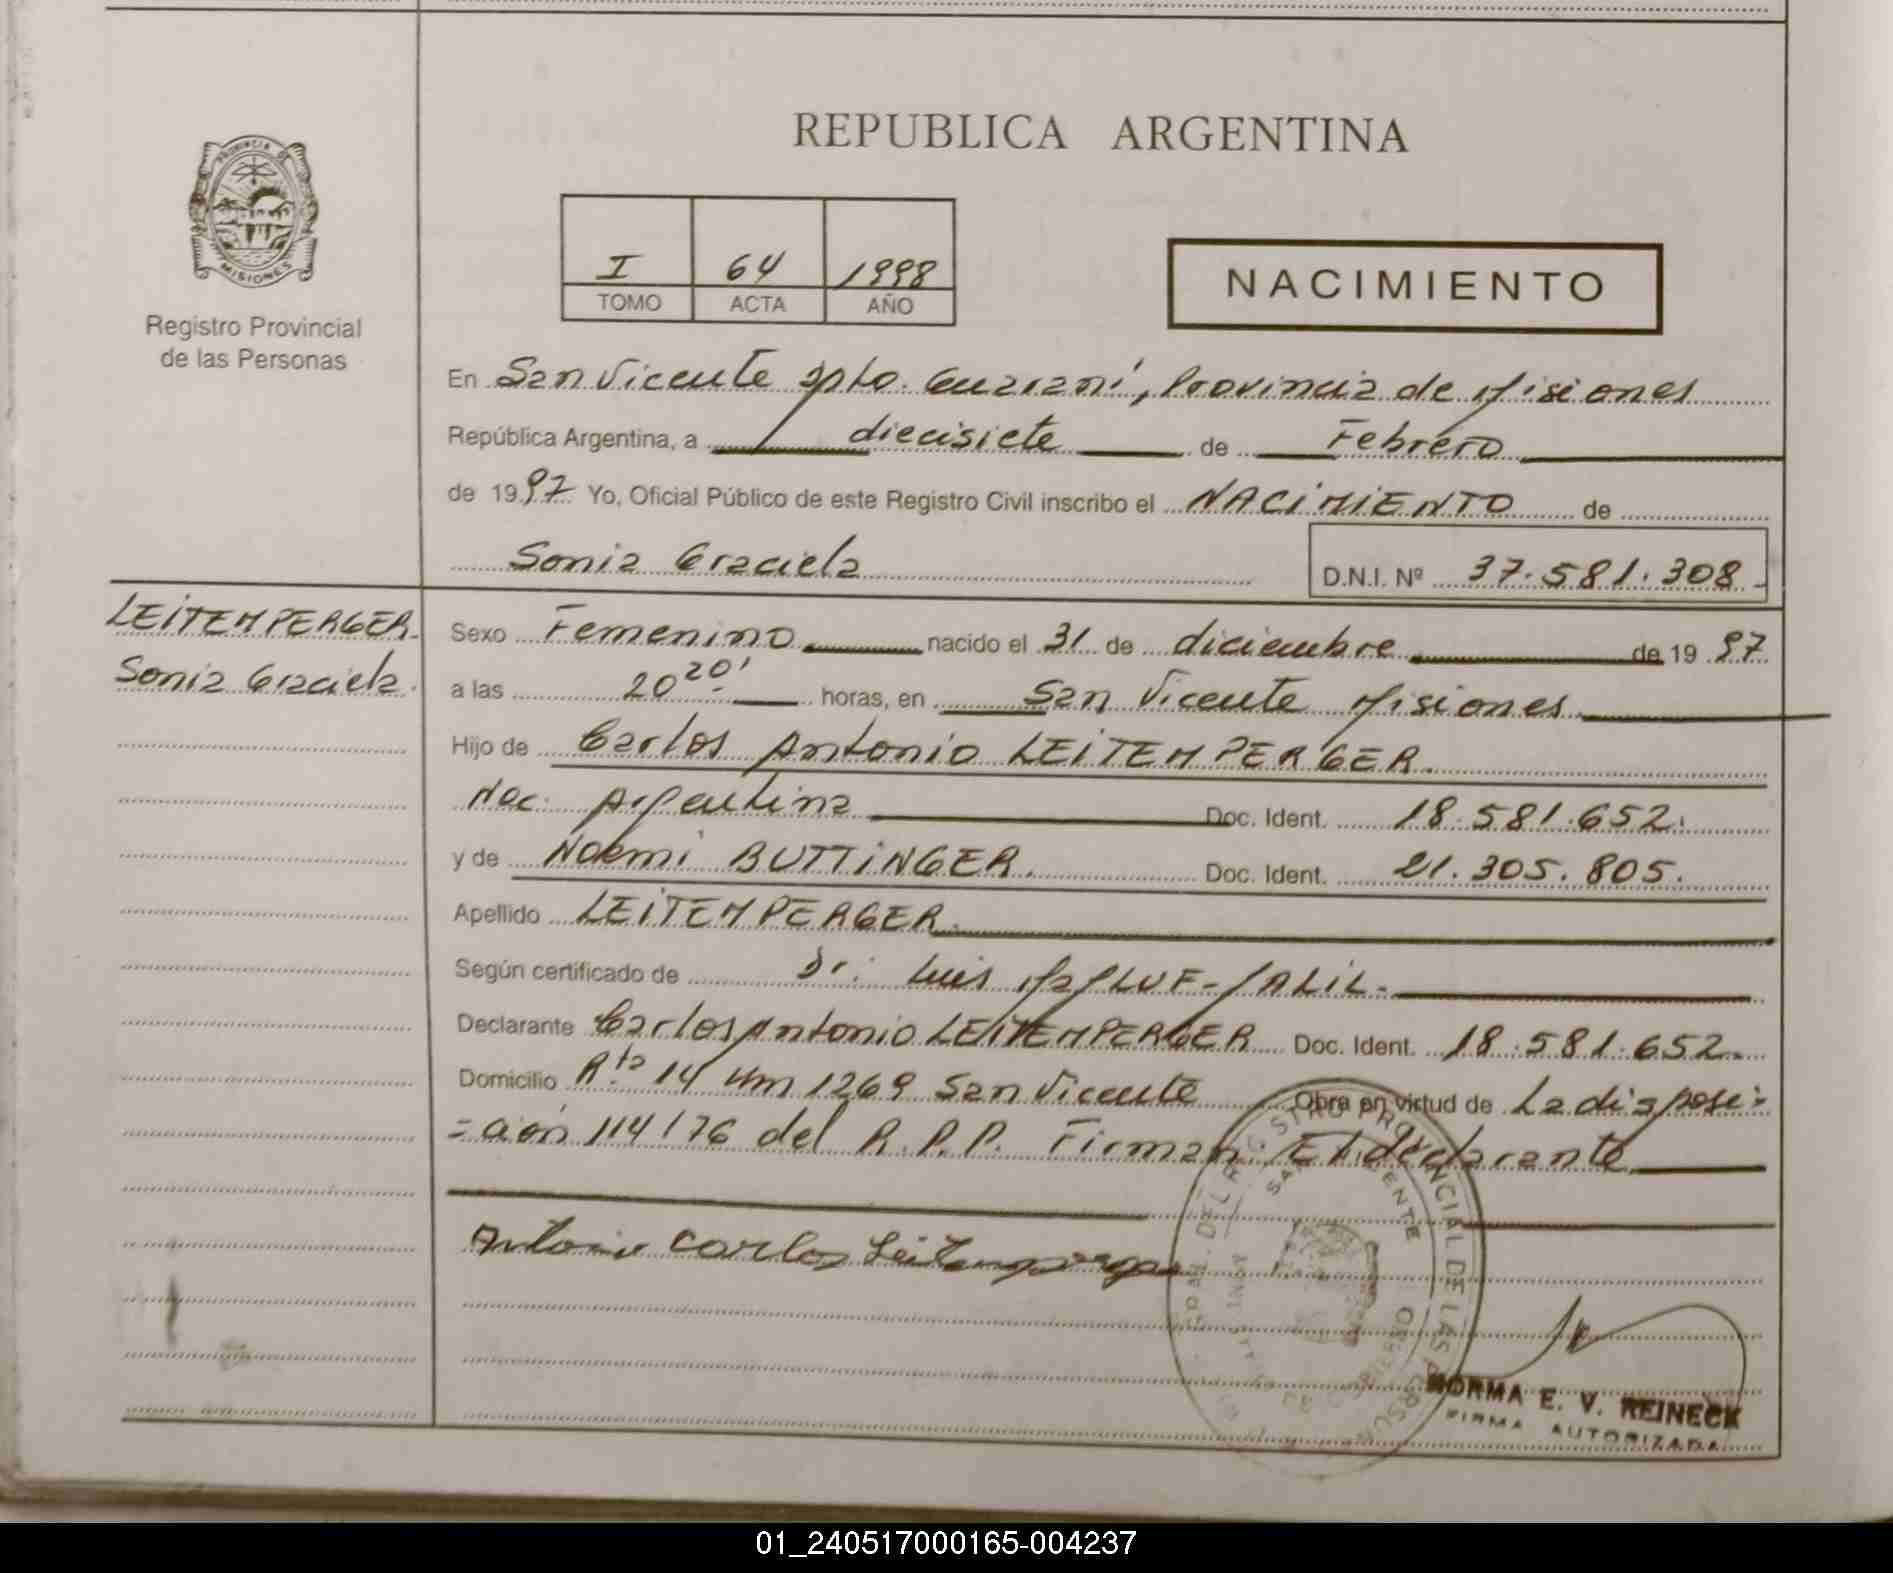 REPUBLICA ARGENTINA
PROVINCIA DE
MISIONES
Registro Provincial
de las Personas
I 64 1998
TOMO ACTA AÑO
NACIMIENTO
En San Vicente Dpto. Guarani, Provincia de Misiones
República Argentina, a diecisiete de Febrero
de 1997 Yo, Oficial Público de este Registro Civil inscribo el NACIMIENTO de
Sonia Graciela D.N.I. Nº 37.581.308
LEITEMPERGER.
Sonia Graciela.
Sexo Femenino nacido el 31 de diciembre de 1997
a las 20 20' horas, en San Vicente Misiones
Hijo de Carlos Antonio LEITEMPERGER.
Nac. Argentina Doc. Ident. 18.581.652.
y de Noemi BUTTINGER. Doc. Ident. 21.305.805.
Apellido LEITEMPERGER.
Según certificado de Dr. Luis
Declarante Carlos Antonio LEITEMPERGER Doc. Ident. 18.581.652.
Domicilio Rta 14 Km 1269 San Vicente Obra en virtud de La disposi=
=ción 114/76 del R.P.P. Firman El declarante
Antonio Carlos Leitemperger
DEL REGISTRO PROVINCIAL DE LAS PERSONAS
SAN VICENTE
NORMA E. V. REINECK
FIRMA AUTORIZADA
01_240517000165-004237